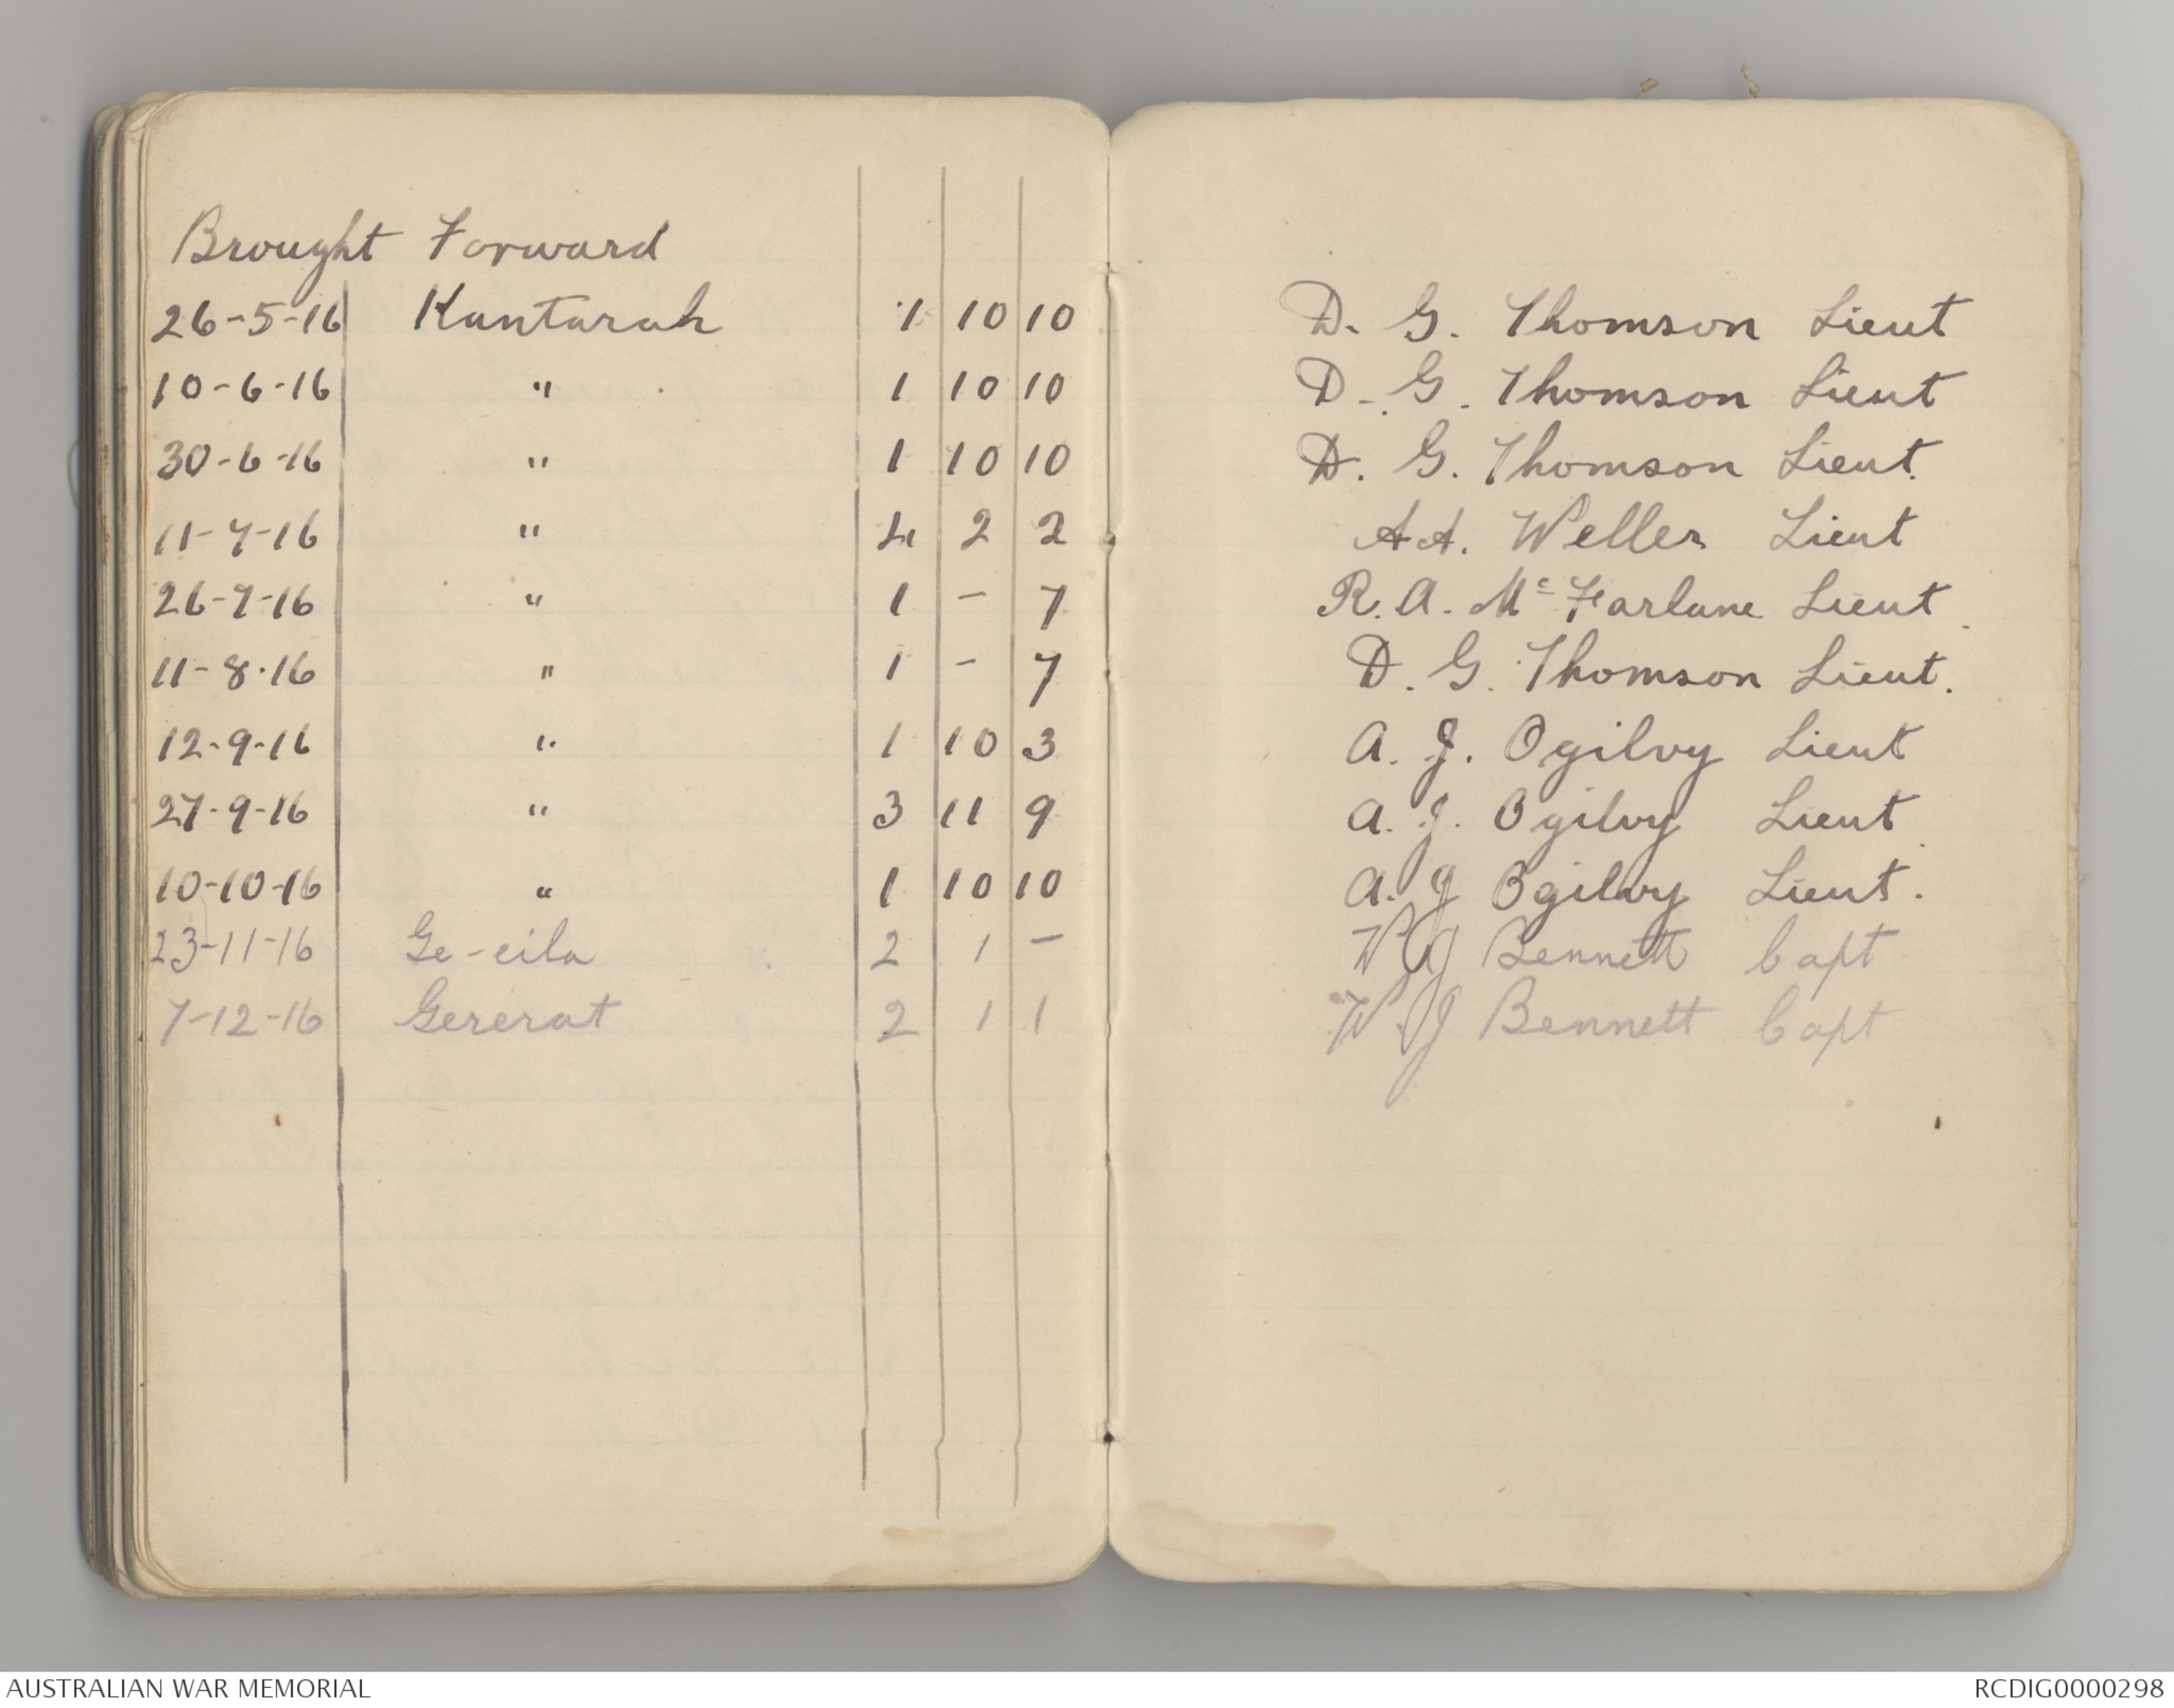 Brought Forward
26-5-16 Kantarah 1 10 10 D. G. Thomson Lieut
10-6-16 " 1 10 10 D. G. Thomson Lieut
30-6-16 " 1 10 10 D. G. Thomson Lieut.
11-7-16 " 4 2 2 A A. Weller Lieut
26-7-16 " 1 - 7 R. A. McFarlane Lieut.
11-8-16 " 1 - 7 D. G. Thomson Lieut.
12-9-16 " 1 10 3 A. J. Ogilvy Lieut
27-9-16 " 3 11 9 A. J. Ogilvy Lieut.
10-10-16 " 1 10 10 A. J Ogilvy Lieut.
23-11-16 Ge-eila 2 1 - W J Bennett Capt
7-12-16 Gererat 2 1 1 W J Bennett Capt
AUSTRALIAN WAR MEMORIAL RCDIG0000298